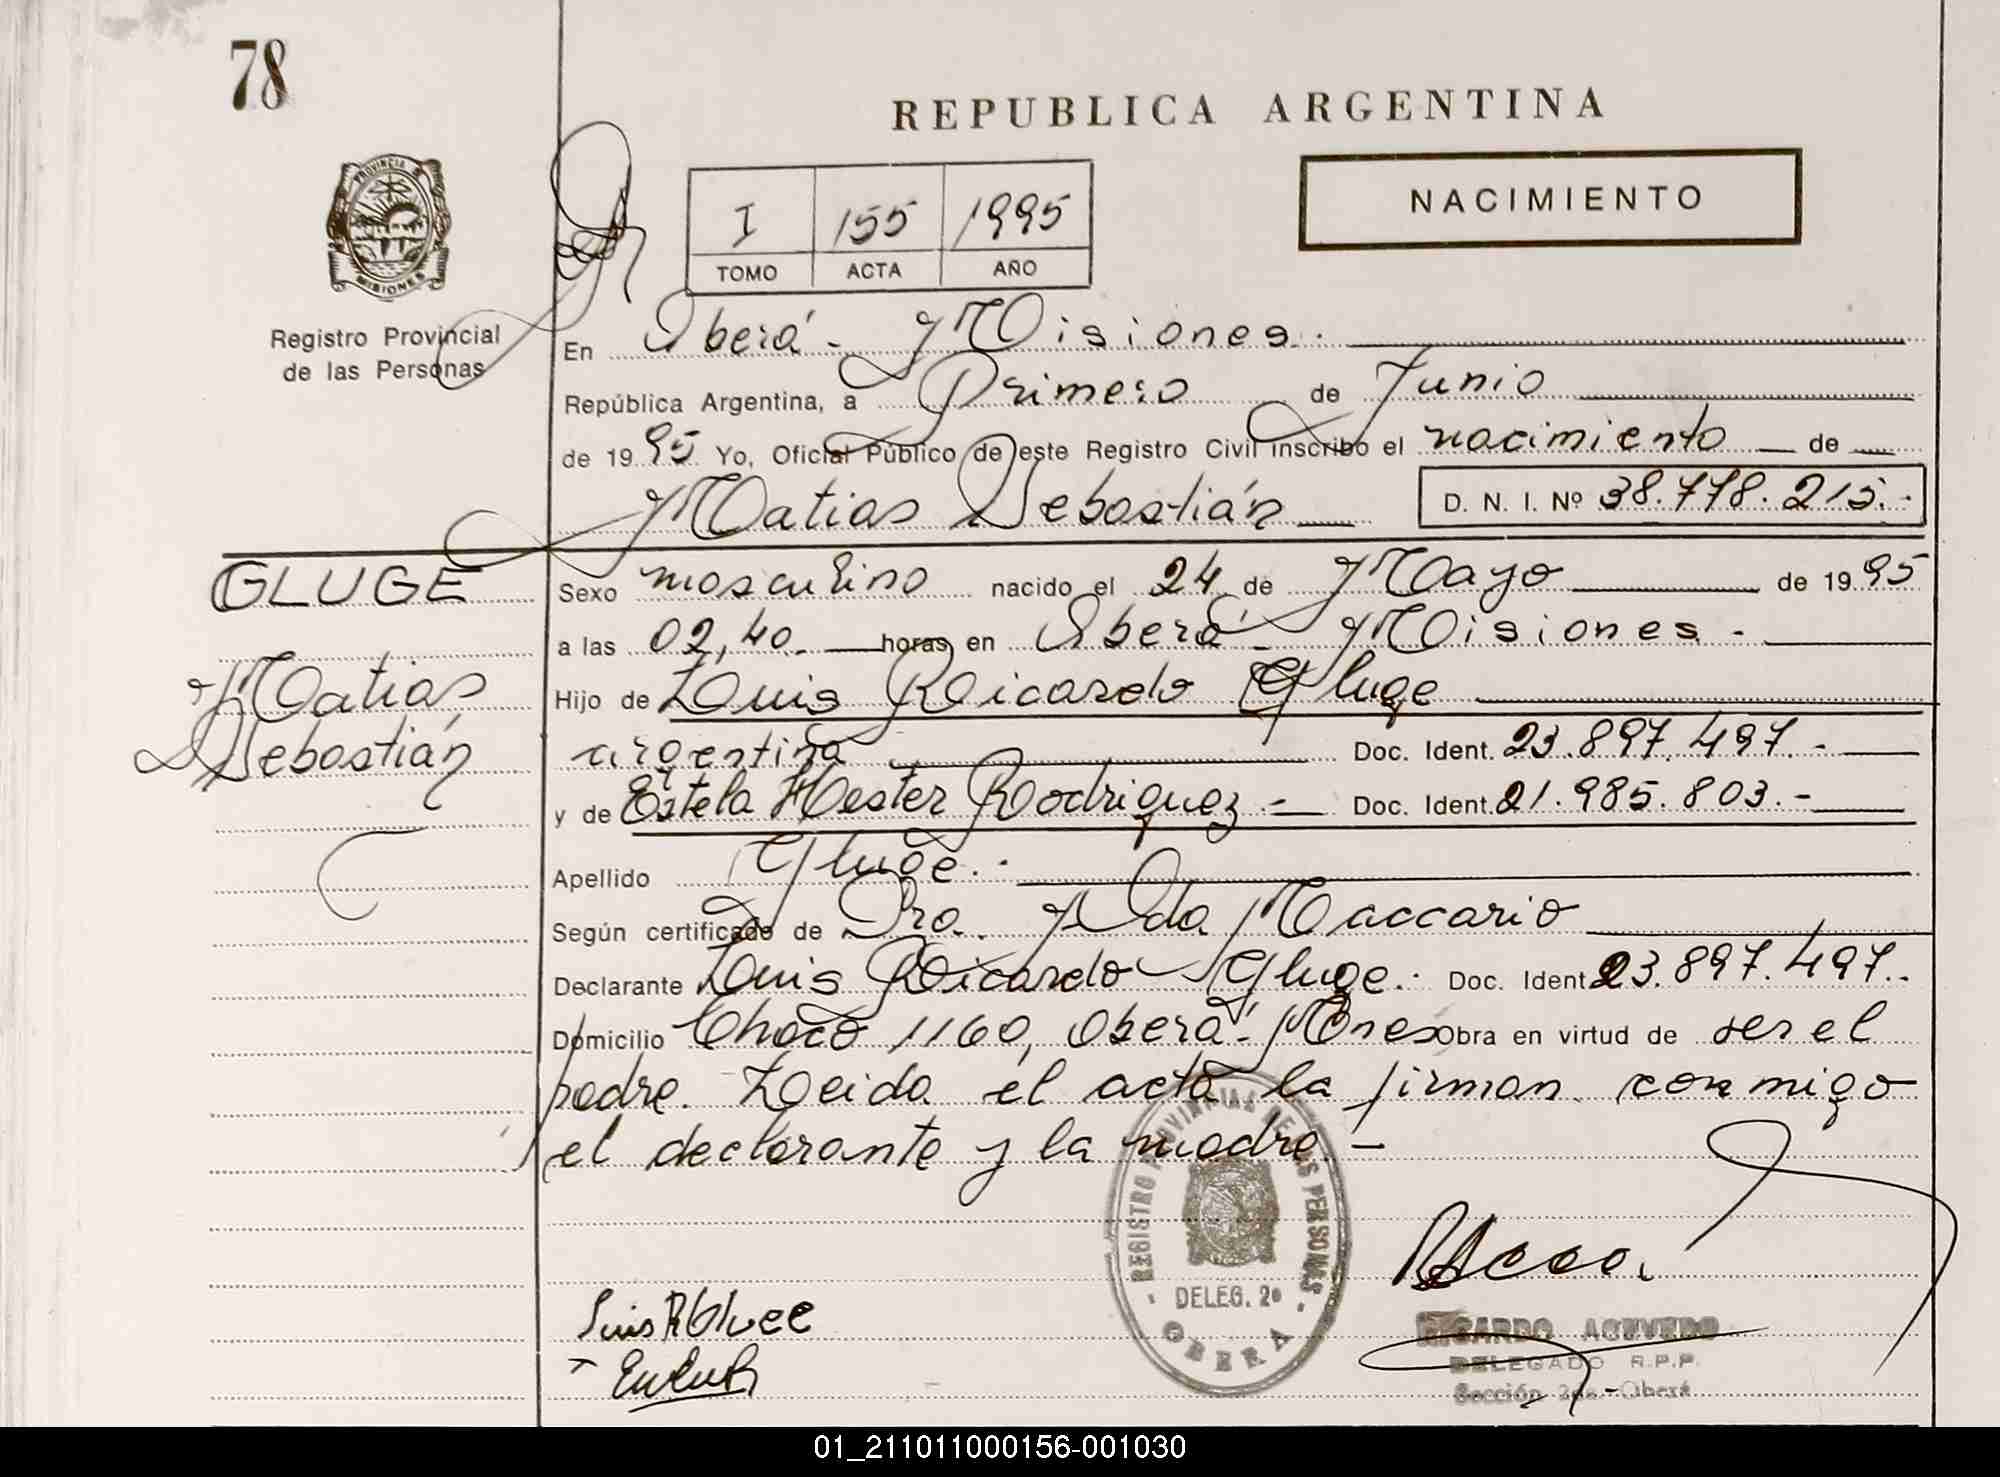 78
REPUBLICA ARGENTINA
PROVINCIA
MISIONES
NACIMIENTO
I 155 1995
TOMO ACTA AÑO
Registro Provincial
de las Personas
En Oberá - Misiones.
República Argentina, a Primero de Junio
de 1995 Yo, Oficial Público de este Registro Civil inscribo el nacimiento de
Matias Sebastián D. N. I. Nº 38.778.215.-
GLUGE
Matias
Sebastián
Sexo masculino nacido el 24 de Mayo de 1995
a las 02,40. horas en Oberá - Misiones -
Hijo de Luis Ricardo Gluge
argentina Doc. Ident. 23.897.497.-
y de Estela Hester Rodriguez - Doc. Ident. 21.985.803.-
Apellido Gluge.
Según certificado de Dra. Ada Maccario
Declarante Luis Ricardo Gluge. Doc. Ident. 23.897.497.-
Domicilio Chaco 1160, Oberá - Mnes Obra en virtud de ser el
padre. Leida el acta la firman conmigo
el declarante y la madre. -
REGISTRO PROVINCIAL DE LAS PERSONAS
DELEG. 2ª
OBERA
Luis R Gluge
RICARDO ACEVEDO
DELEGADO R.P.P.
Sección 2da. - Oberá
01_211011000156-001030